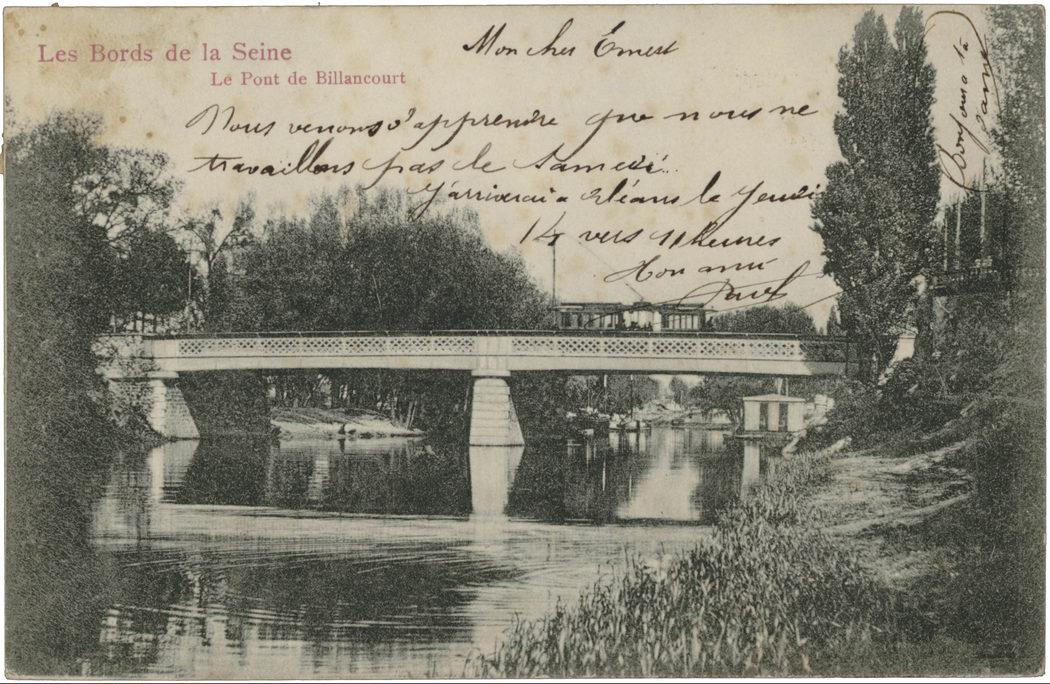 Les Bords de la Seine
Le Pont de Billancourt
Mon cher Ernest
Nous venons d'apprendre que nous ne
travaillons pas le Samedi..
J'arriverai a Orléans le Jeudi
14 vers 11 heures
Ton ami
Bonjour a ta